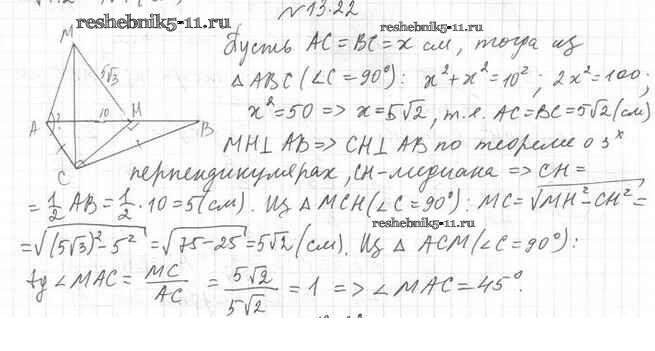 N 13.22
reshebnik5-11.ru
reshebnik5-11.ru
M
5√3
A
?
10
H
B
C
Пусть AC = BC = x см, тогда из
△ABC (∠C = 90°): x² + x² = 10²; 2x² = 100;
x² = 50 => x = 5√2, т.е. AC = BC = 5√2 (см)
MH ⊥ AB => CH ⊥ AB по теореме о 3ˣ
перпендикулярах, CH - медиана => CH =
= 1/2 AB = 1/2 · 10 = 5 (см). Из △ MCH (∠C = 90°): MC = √(MH² - CH²) =
reshebnik5-11.ru
= √((5√3)² - 5²) = √(75 - 25) = 5√2 (см). Из △ ACM (∠C = 90°):
tg ∠MAC = MC/AC = 5√2/5√2 = 1 => ∠MAC = 45°.